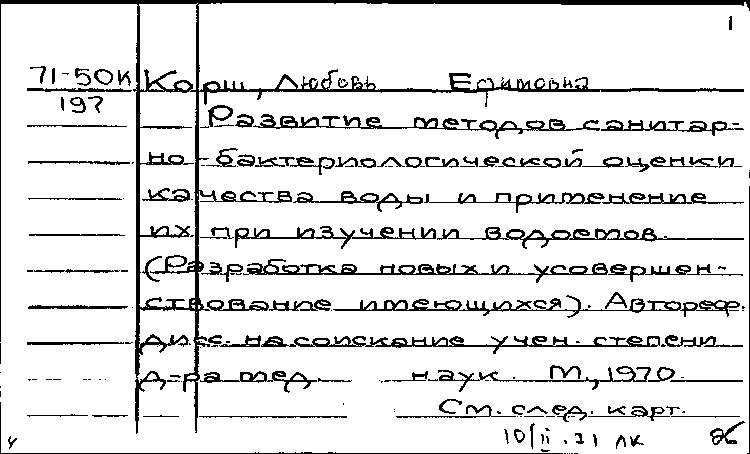 1
71-50К Корш, Любовь Ефимовна
197
Развитие методов санитар-
но-бактериологической оценки
качества воды и применение
их при изучении водоемов.
(Разработка новых и усовершен-
ствование имеющихся). Автореф.
дисс. на соискание учен. степени
д-ра мед. наук. М., 1970.
См. след. карт.
10/II.71 ЛК